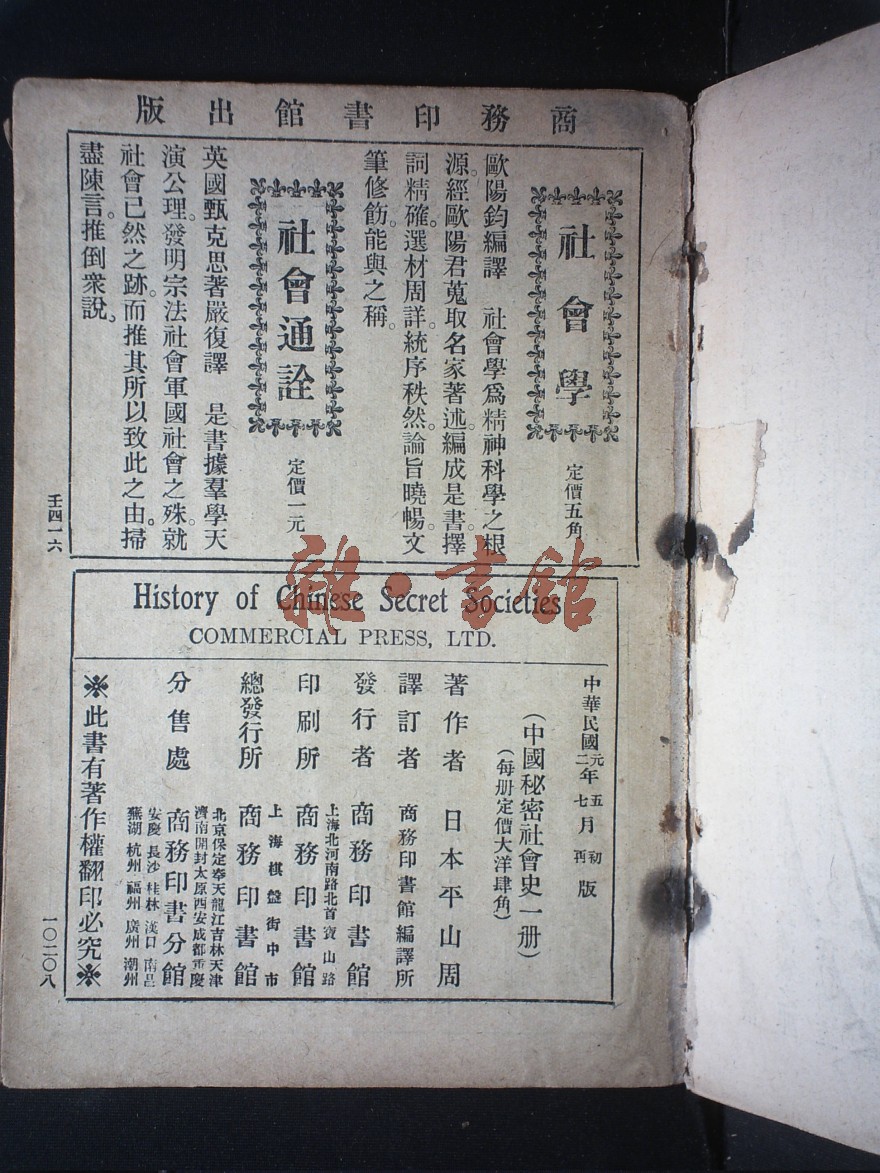 商務印書館出版
社會學
定價五角
歐陽鈞編譯　社會學爲精神科學之根
源。經歐陽君蒐取名家著述。編成是書。擇
詞精確。選材周詳。統序秩然。論旨曉暢。文
筆修飭。能與之稱。
社會通詮
定價一元
英國甄克思著嚴復譯　是書據羣學天
演公理。發明宗法社會軍國社會之殊。就
社會已然之跡。而推其所以致此之由。掃
盡陳言。推倒衆說。
壬四一六
History of Chinese Secret Societies
COMMERCIAL PRESS, LTD.
中華民國元年五月初版
二年七月再版
（中國秘密社會史一册）
（每册定價大洋肆角）
著作者　日本平山周
譯訂者　商務印書館編譯所
發行者　商務印書館
上海北河南路北首寶山路
印刷所　商務印書館
上海棋盤街中市
總發行所　商務印書館
北京保定奉天龍江吉林天津
濟南開封太原西安成都重慶
分售處　商務印書分館
安慶長沙桂林漢口南昌
蕪湖杭州福州廣州潮州
※此書有著作權翻印必究※
一〇二〇八
雜·書館